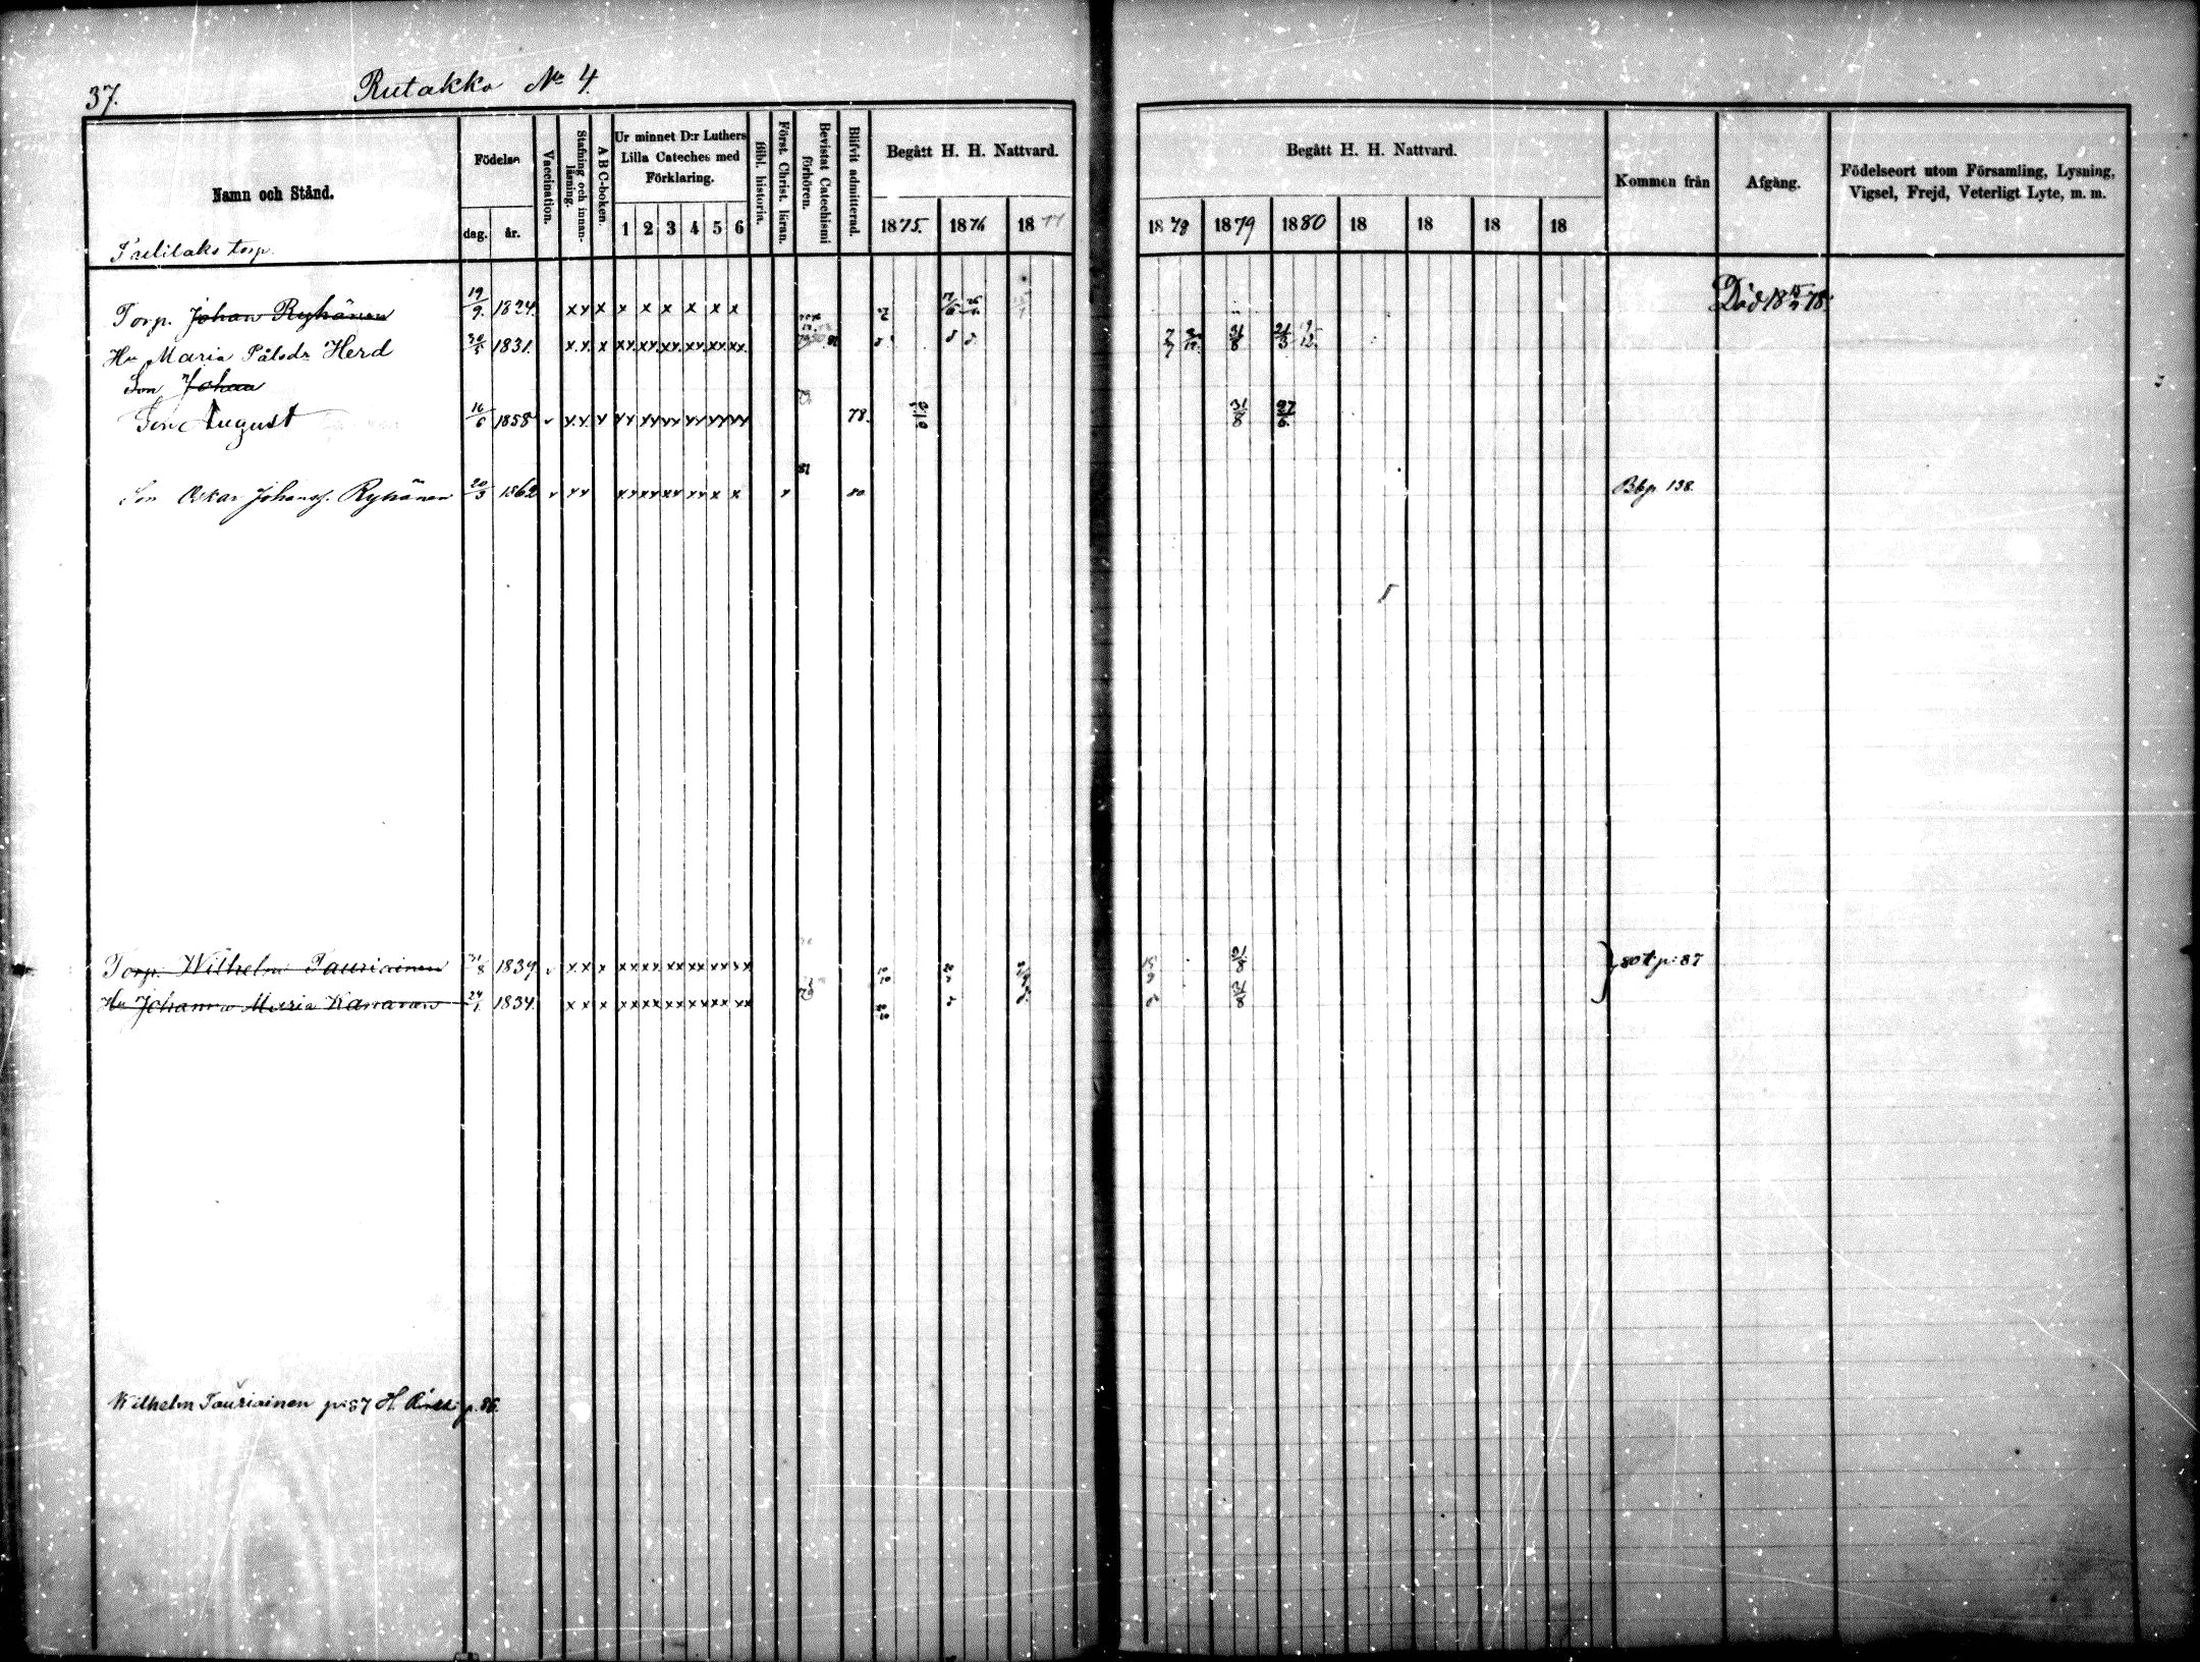 37.
Rutakko No 4.
Namn och Stånd.
Födelse
dag.
år.
Vaccination.
Stafning och innan-läsning.
A B C-boken.
Ur minnet D:r Luthers
Lilla Cateches med
Förklaring.
1 2 3 4 5 6
Bibl. historia.
Först. Christ. läran.
Bevistat Catechismi förhören.
Blifvit admitterad.
Begått H. H. Nattvard.
1875. 1876 1877
Begått H. H. Nattvard.
1878 1879 1880 18 18 18 18
Kommen från
Afgång.
Födelseort utom Församling, Lysning,
Vigsel, Frejd, Veterligt Lyte, m. m.
torp.
Torp. Johan Ryhänen 19/9. 1824. x x x x x x x x x Död 18 78.
Hu Maria Pålsdr Herd 1831. x x x xx xx xx xx xx xx 31/8
Son Johan
Son August 16/6 1858 v x x x xx xx xx xx xx xx 78. 31/8 27/6.
81
Son Oskar Johanss. Ryhänen 20/3 1862 v x x xx xx xx xx x x v 80 Bbp 138.
Torp. Wilhelm Tauriainen 31/8 1839 v x x x xx xx xx xx xx xx 31/8 p: 87
Hu Johanna Maria 24/1. 1834. x x x xx xx xx xx xx xx 31/8
Wilhelm Tauriainen p: 87 H. p. 86.